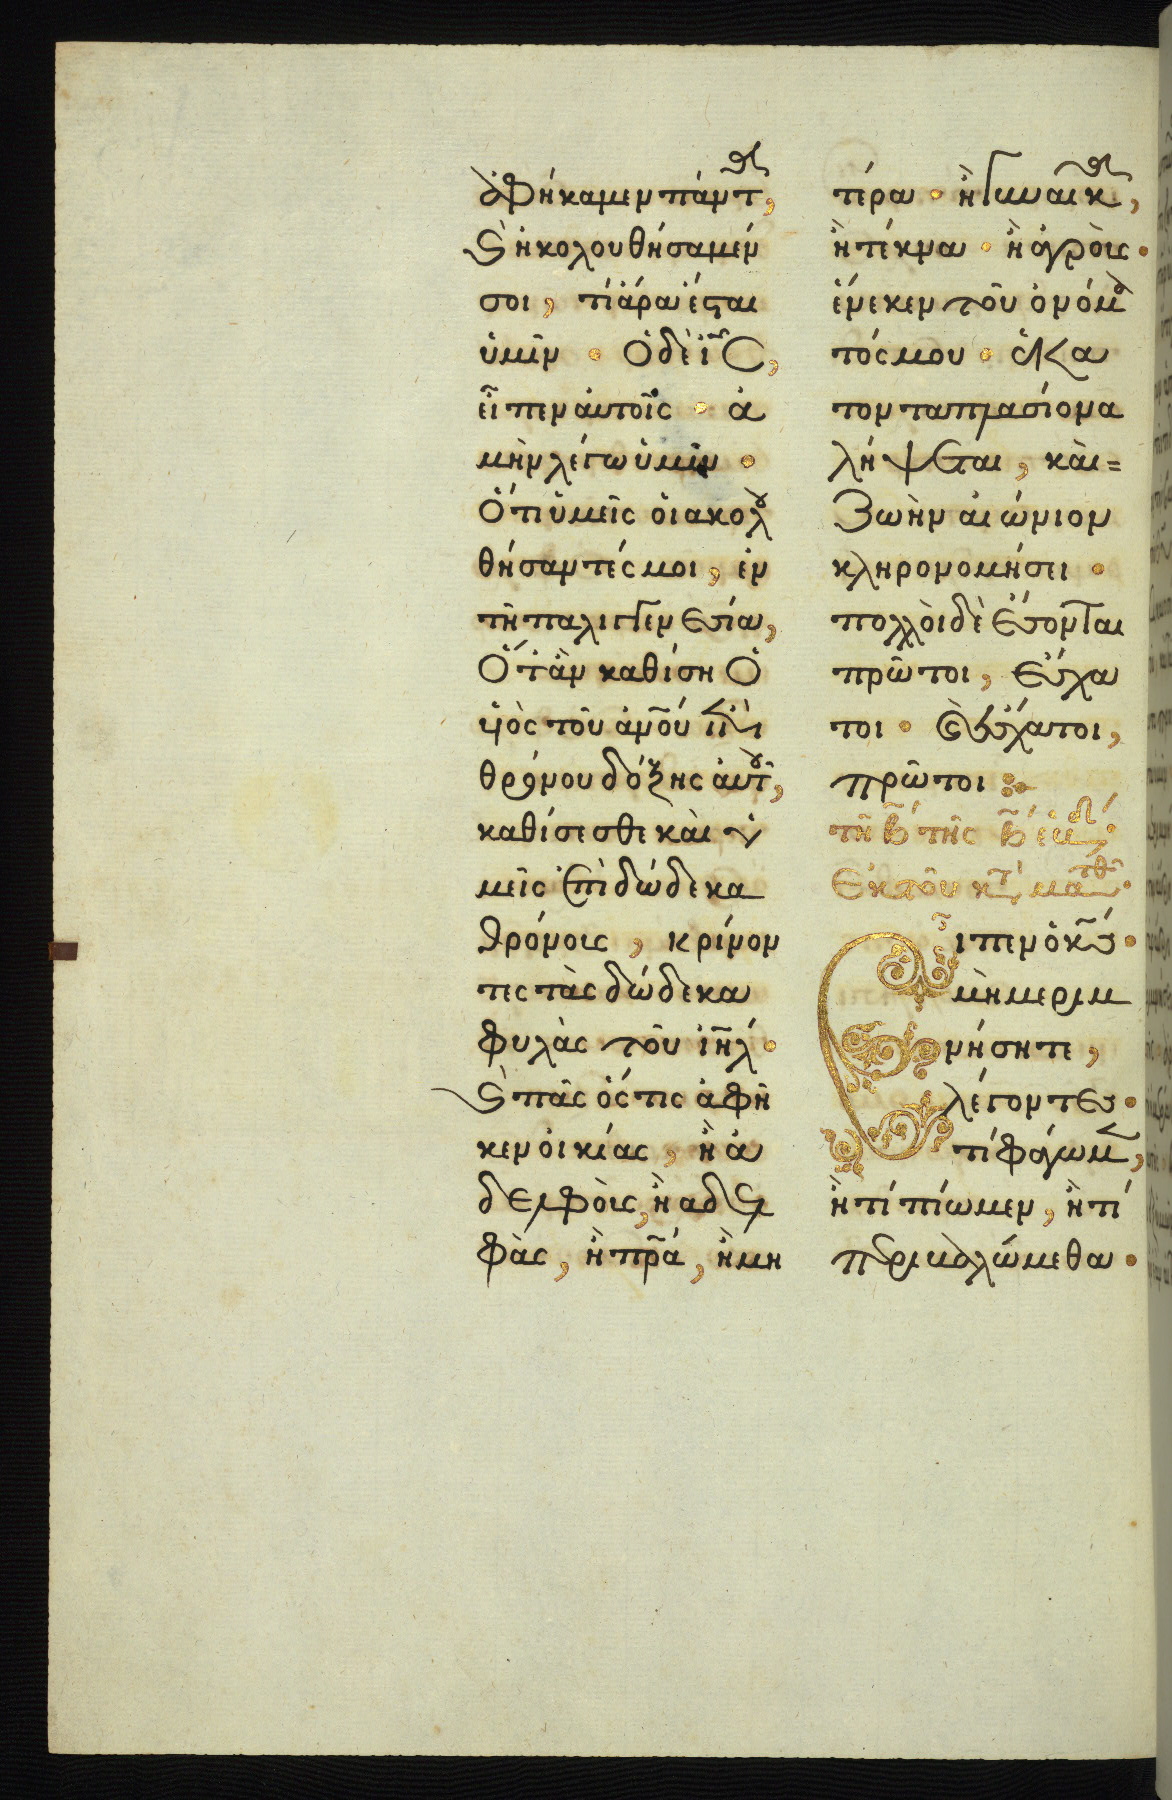 ἀφήκαμεν πάντ,
ϗ ἠκολουθήσαμέν
σοι, τί ἄρα ἔσται
ὑμῖν · Ὁ δὲ ἰς,
εἶπεν αὐτοῖς · ἀ
μὴν λέγω ὑμῖν ·
Ὅτι ὑμεῖς οἱ ακολȣ
θήσαντές μοι, ἐν
τῆ παλιγγενεσία,
Ὅταν καθίση Ὁ
υἱὸς τοῦ ἀνοῦ ἐπὶ
θρόνου δόξης ἀυτȣ,
καθίσεσθε καὶ ὑ
μεῖς ἐπὶ δώδεκα
θρόνους, κρίνον
τες τὰς δώδεκα
φυλὰς τοῦ ἰηλ ·
ϗ πᾶς ὅστις ἀφῆ
κεν οἰκίας, ἢ ἀ
δελφοὺς, ἢ αδελ
φὰς, ἢ πρα, ἢ μη
τέρα · ἢ γυναικ,
ἢ τέκνα · ἢ ἀγροὺς ·
ἕνεκεν τοῦ ὀνόμα
τός μου · ἑκα
τονταπλασίονα
λήψεται, καὶ =
Ζωὴν αἰώνιον
κληρονομήσει ·
πολλοὶ δὲ ἔσονται
πρῶτοι, ἔσχα
τοι · ϗ ἔσχατοι,
πρῶτοι
τῆ β τῆς β ἑβδ
Ἐκ τοῦ κτ ματθ ·
ιπεν ὁ κς ·
μὴ μεριμ
νήσητε,
λέγοντες ·
τί φάγωμ,
ἢ τί πίωμεν, ἢ τί
περιβαλώμεθα ·